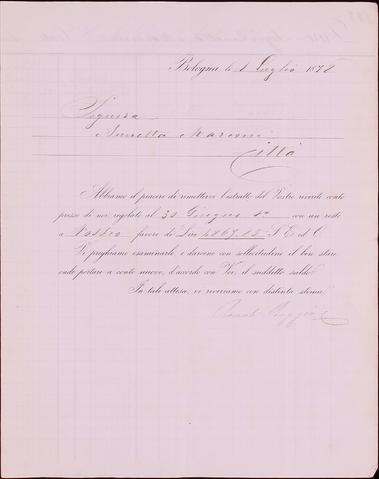 Bologna li 1 Luglio 1878
Signora
Annetta Marconi
Città
Abbiamo il piacere di rimettervi l'estratto del Vostro riverito conto
presso di noi regolato al 30 Giugno
con un resto
a Vostro favore di Lire 4867.05 S. E. ed O.
Vi preghiamo esaminarlo, e darcene con sollecitudine il ben stare
onde portare a conto nuovo, d'accordo con Voi, il suddetto saldo.
In tale attesa, vi riveriamo con distinta stima